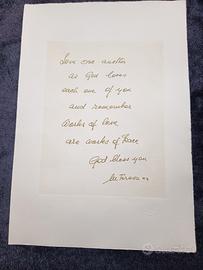 Love one another
as God loves
each one of you
and remember
Works of love
are works of Peace
God bless you
M Teresa mc
subito